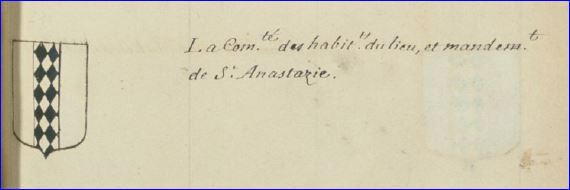 La Com.té des habit.ts du lieu, et mandem.t
de S.t Anastazie.